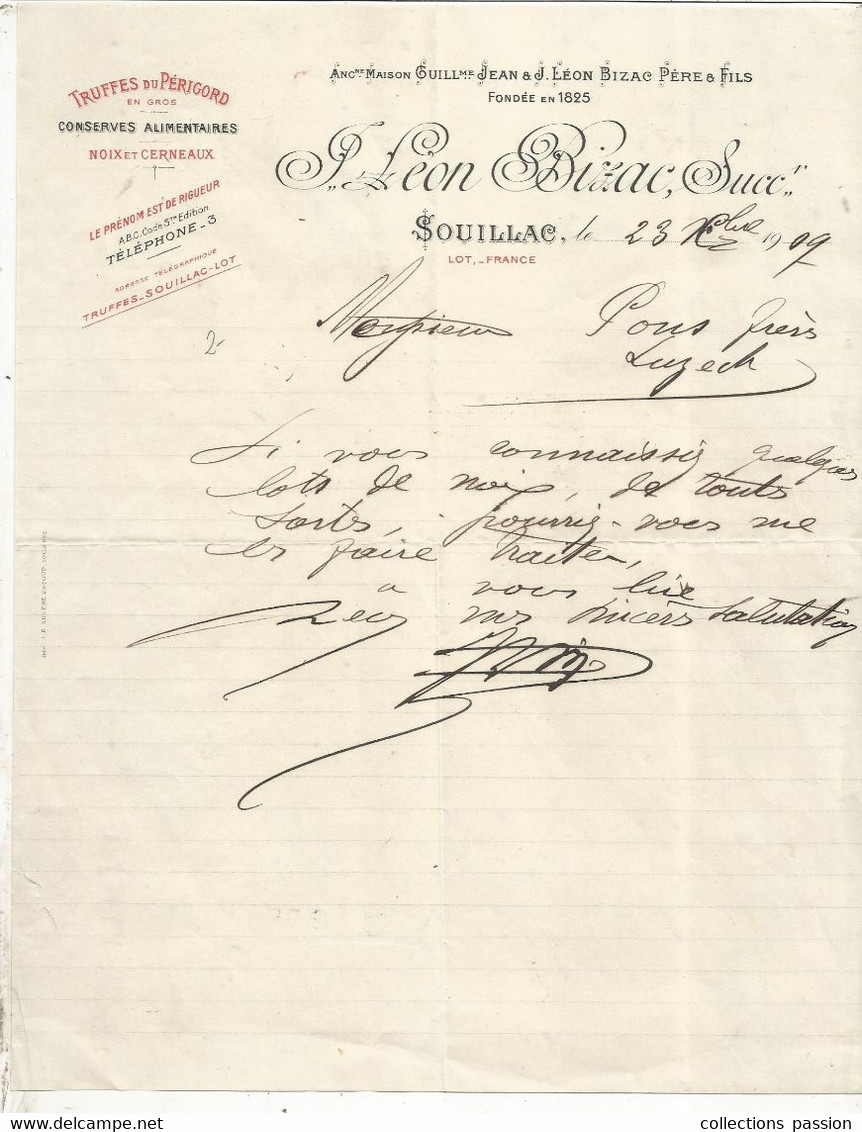 TRUFFES DU PÉRIGORD
EN GROS
CONSERVES ALIMENTAIRES
NOIX ET CERNEAUX
LE PRÉNOM EST DE RIGUEUR
A.B.C. Code 5me Edition
TÉLÉPHONE-3
ADRESSE TÉLÉGRAPHIQUE
TRUFFES-SOUILLAC-LOT
ANCNE MAISON GUILLME JEAN & J. LÉON BIZAC PÈRE & FILS
FONDÉE EN 1825
J. Léon Bizac, Succr
SOUILLAC, le 23 Xbre 1909
LOT,-FRANCE
2-
Monsieur Pons frères
Luzech
Si vous connaissiz quelques
lots de noix, de touts
sortes, pourriz-vous me
les faire traiter,
a vous lire
mes sincères salutations
collections passion